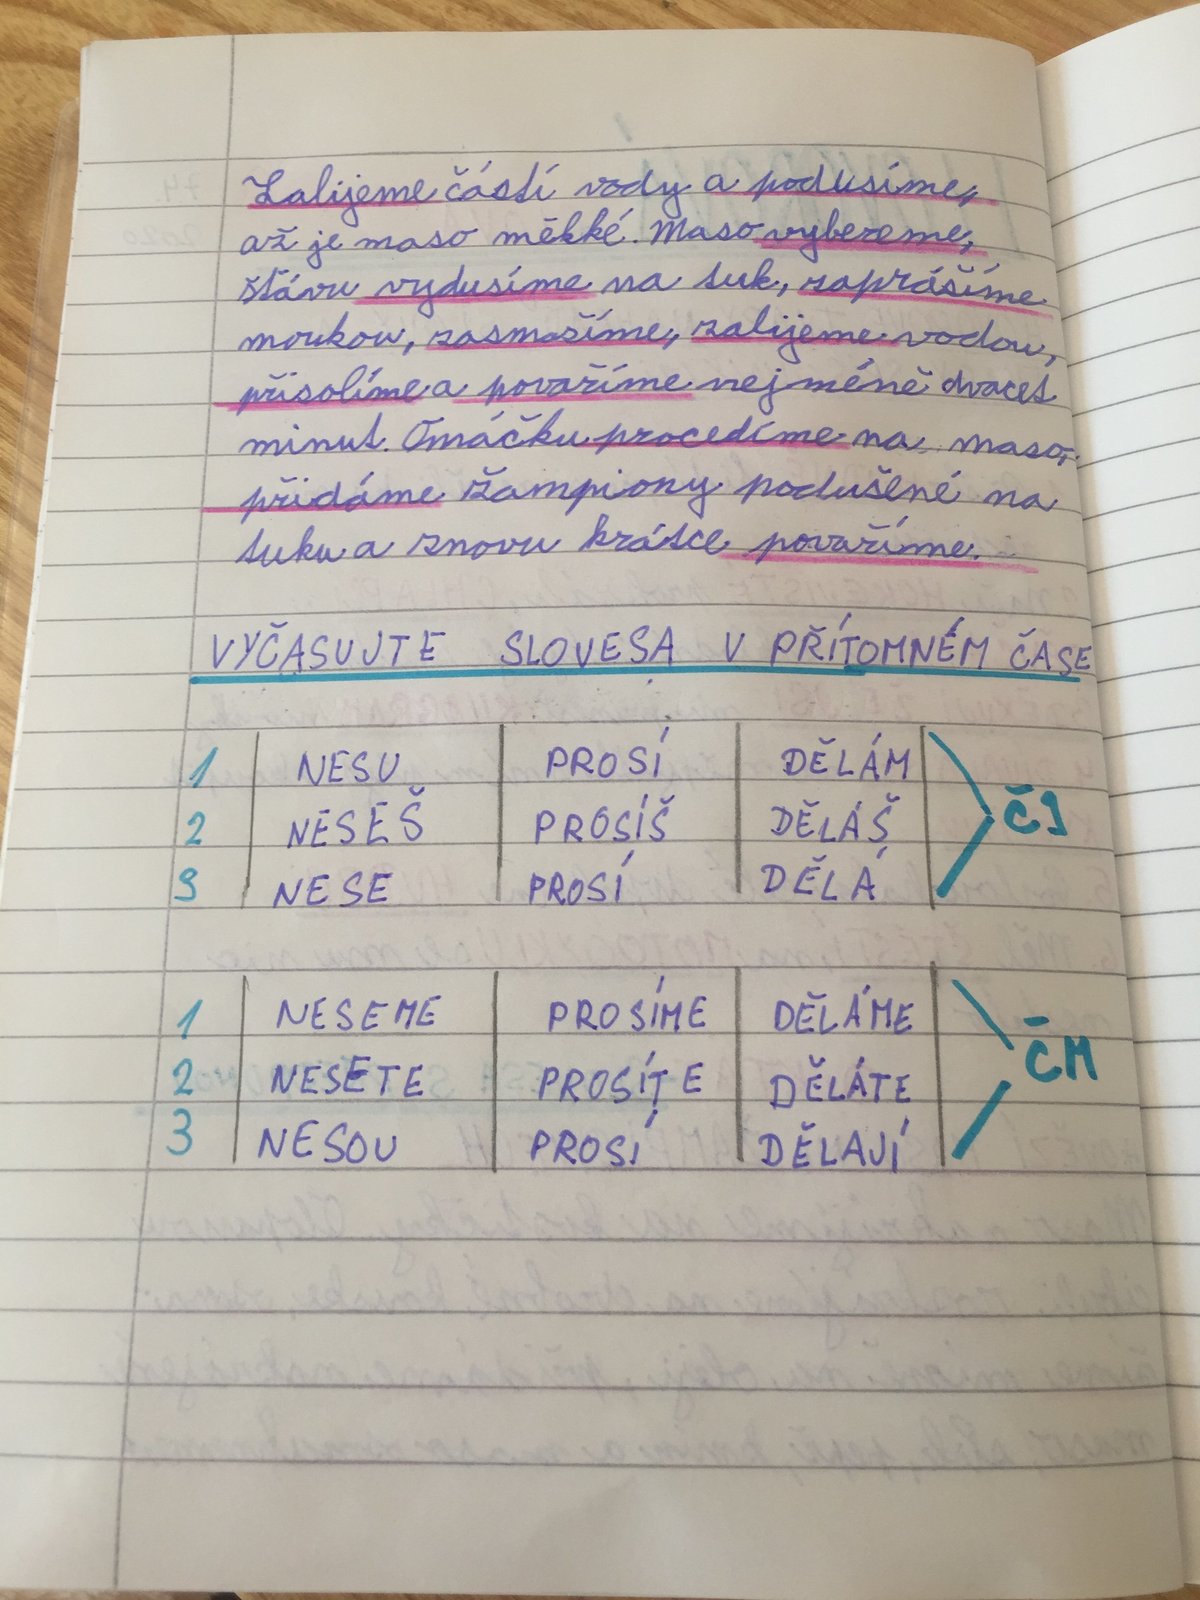 Zalijeme částí vody a podusíme,
až je maso měkké. Maso vybereme,
šťávu vydusíme na tuk, zaprášíme
moukou, zasmažíme, zalijeme vodou,
přisolíme a povaříme nejméně dvacet
minut. Omáčku procedíme na maso,
přidáme žampiony podušené na
tuku a znovu krátce povaříme.
VYČASUJTE SLOVESA V PŘÍTOMNÉM ČASE
1 NESU PROSÍ DĚLÁM
2 NESEŠ PROSÍŠ DĚLÁŠ ČJ
3 NESE PROSÍ DĚLÁ
1 NESEME PROSÍME DĚLÁME
2 NESETE PROSÍTE DĚLÁTE ČM
3 NESOU PROSÍ DĚLAJÍ